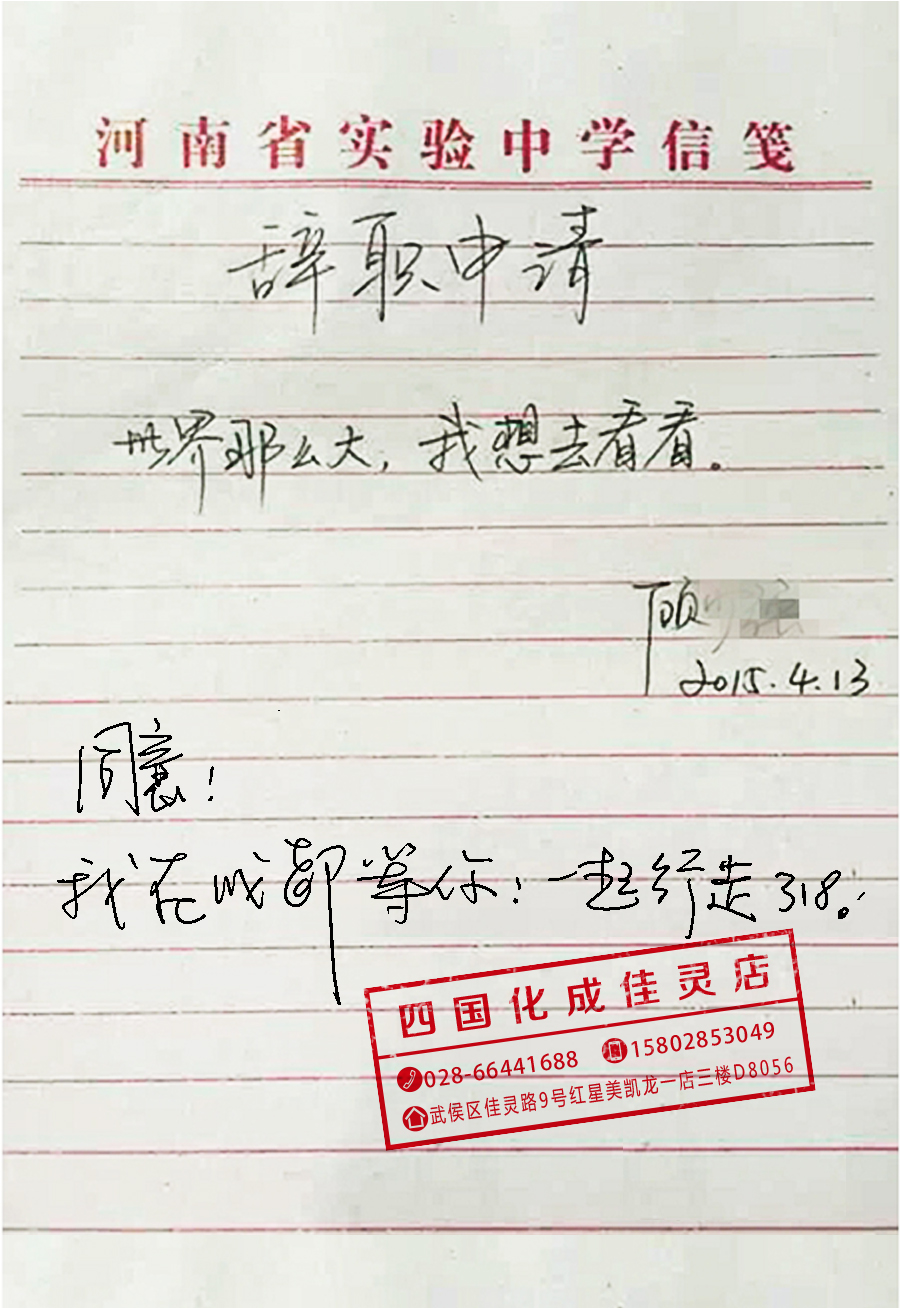 河南省实验中学信笺
辞职申请
世界那么大，我想去看看。
顾
2015.4.13
同意！
我在成都等你！一起行走318。
四国化成佳灵店
028-66441688 15802853049
武侯区佳灵路9号红星美凯龙一店三楼D8056